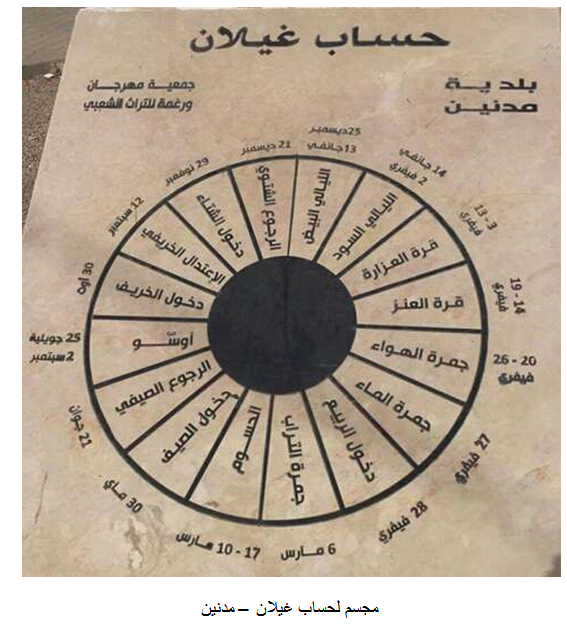 حساب غيلان
بلدية
مدنين
جمعية مهرجان
ورغمة للتراث الشعبي
25 ديسمبر
13 جانفي
الليالي البيض
14 جانفي
2 فيفري
الليالي السود
3 - 13
فيفري
قرة العزارة
14 - 19
فيفري
قرة العنز
20 - 26
فيفري
جمرة الهواء
27 فيفري
جمرة الماء
28 فيفري
دخول الربيع
6 مارس
جمرة التراب
10 - 17 مارس
الحسوم
30 ماي
دخول الصيف
21 جوان
الرجوع الصيفي
25 جويلية
2 سبتمبر
أوسّو
30 أوت
دخول الخريف
12 سبتمبر
الإعتدال الخريفي
29 نوفمبر
دخول الشتاء
21 ديسمبر
الرجوع الشتوي
مجسم لحساب غيلان – مدنين